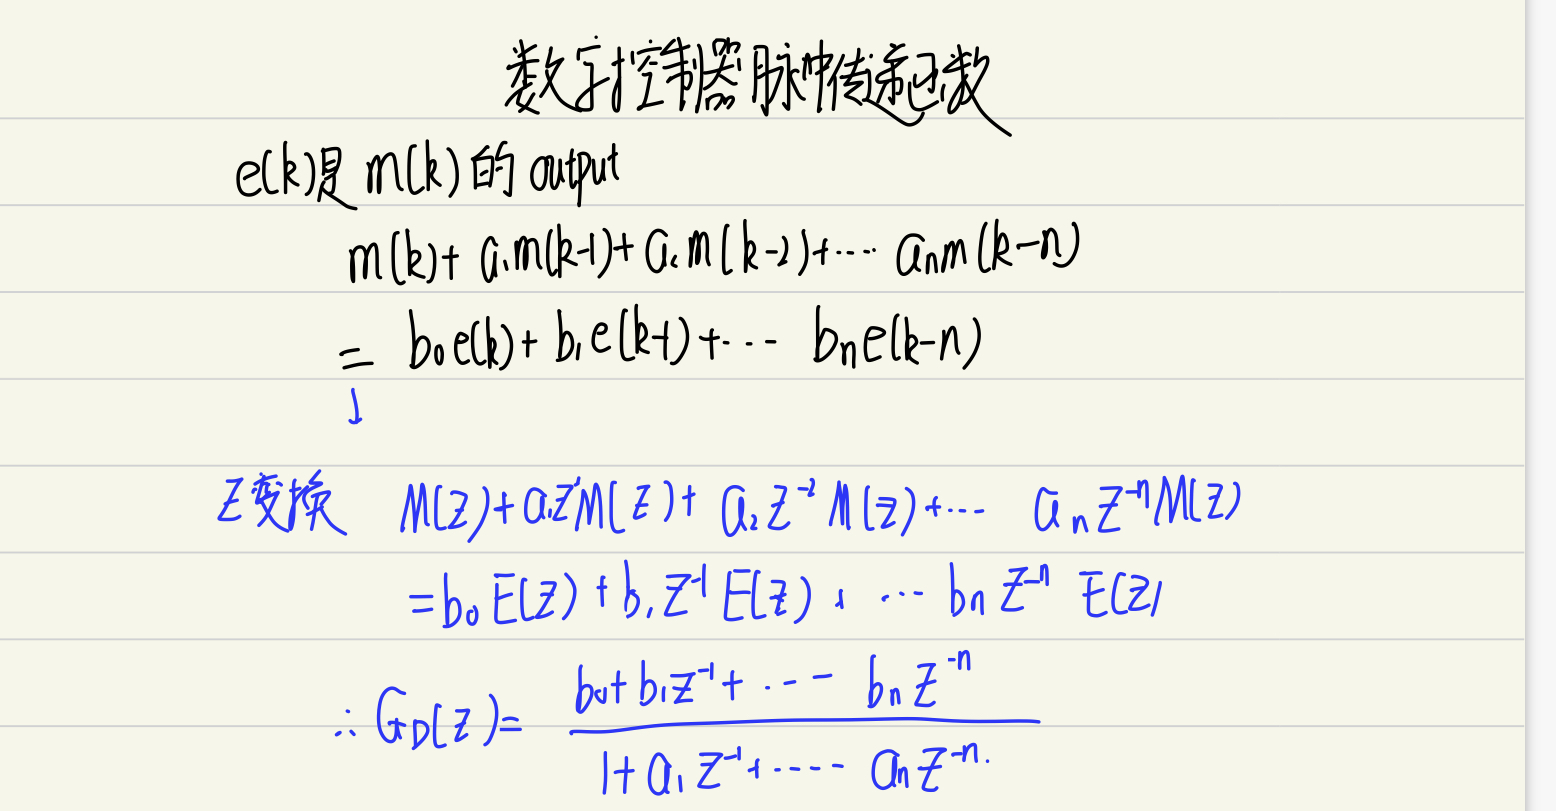 数字控制器脉冲传递函数
e(k)是 m(k)的 output
m(k)+ a₁m(k-1)+ a₂m(k-2)+··· aₙm(k-n)
= b₀e(k)+ b₁e(k-1)+··· bₙe(k-n)
↓
Z变换 M(z)+a₁z⁻¹M(z)+ a₂z⁻²M(z)+··· aₙz⁻ⁿM(z)
=b₀E(z)+b₁z⁻¹E(z)+ ··· bₙz⁻ⁿ E(z)
b₀+b₁z⁻¹+··· bₙz⁻ⁿ
∴ G_D(z)=
1+a₁z⁻¹+···· aₙz⁻ⁿ.